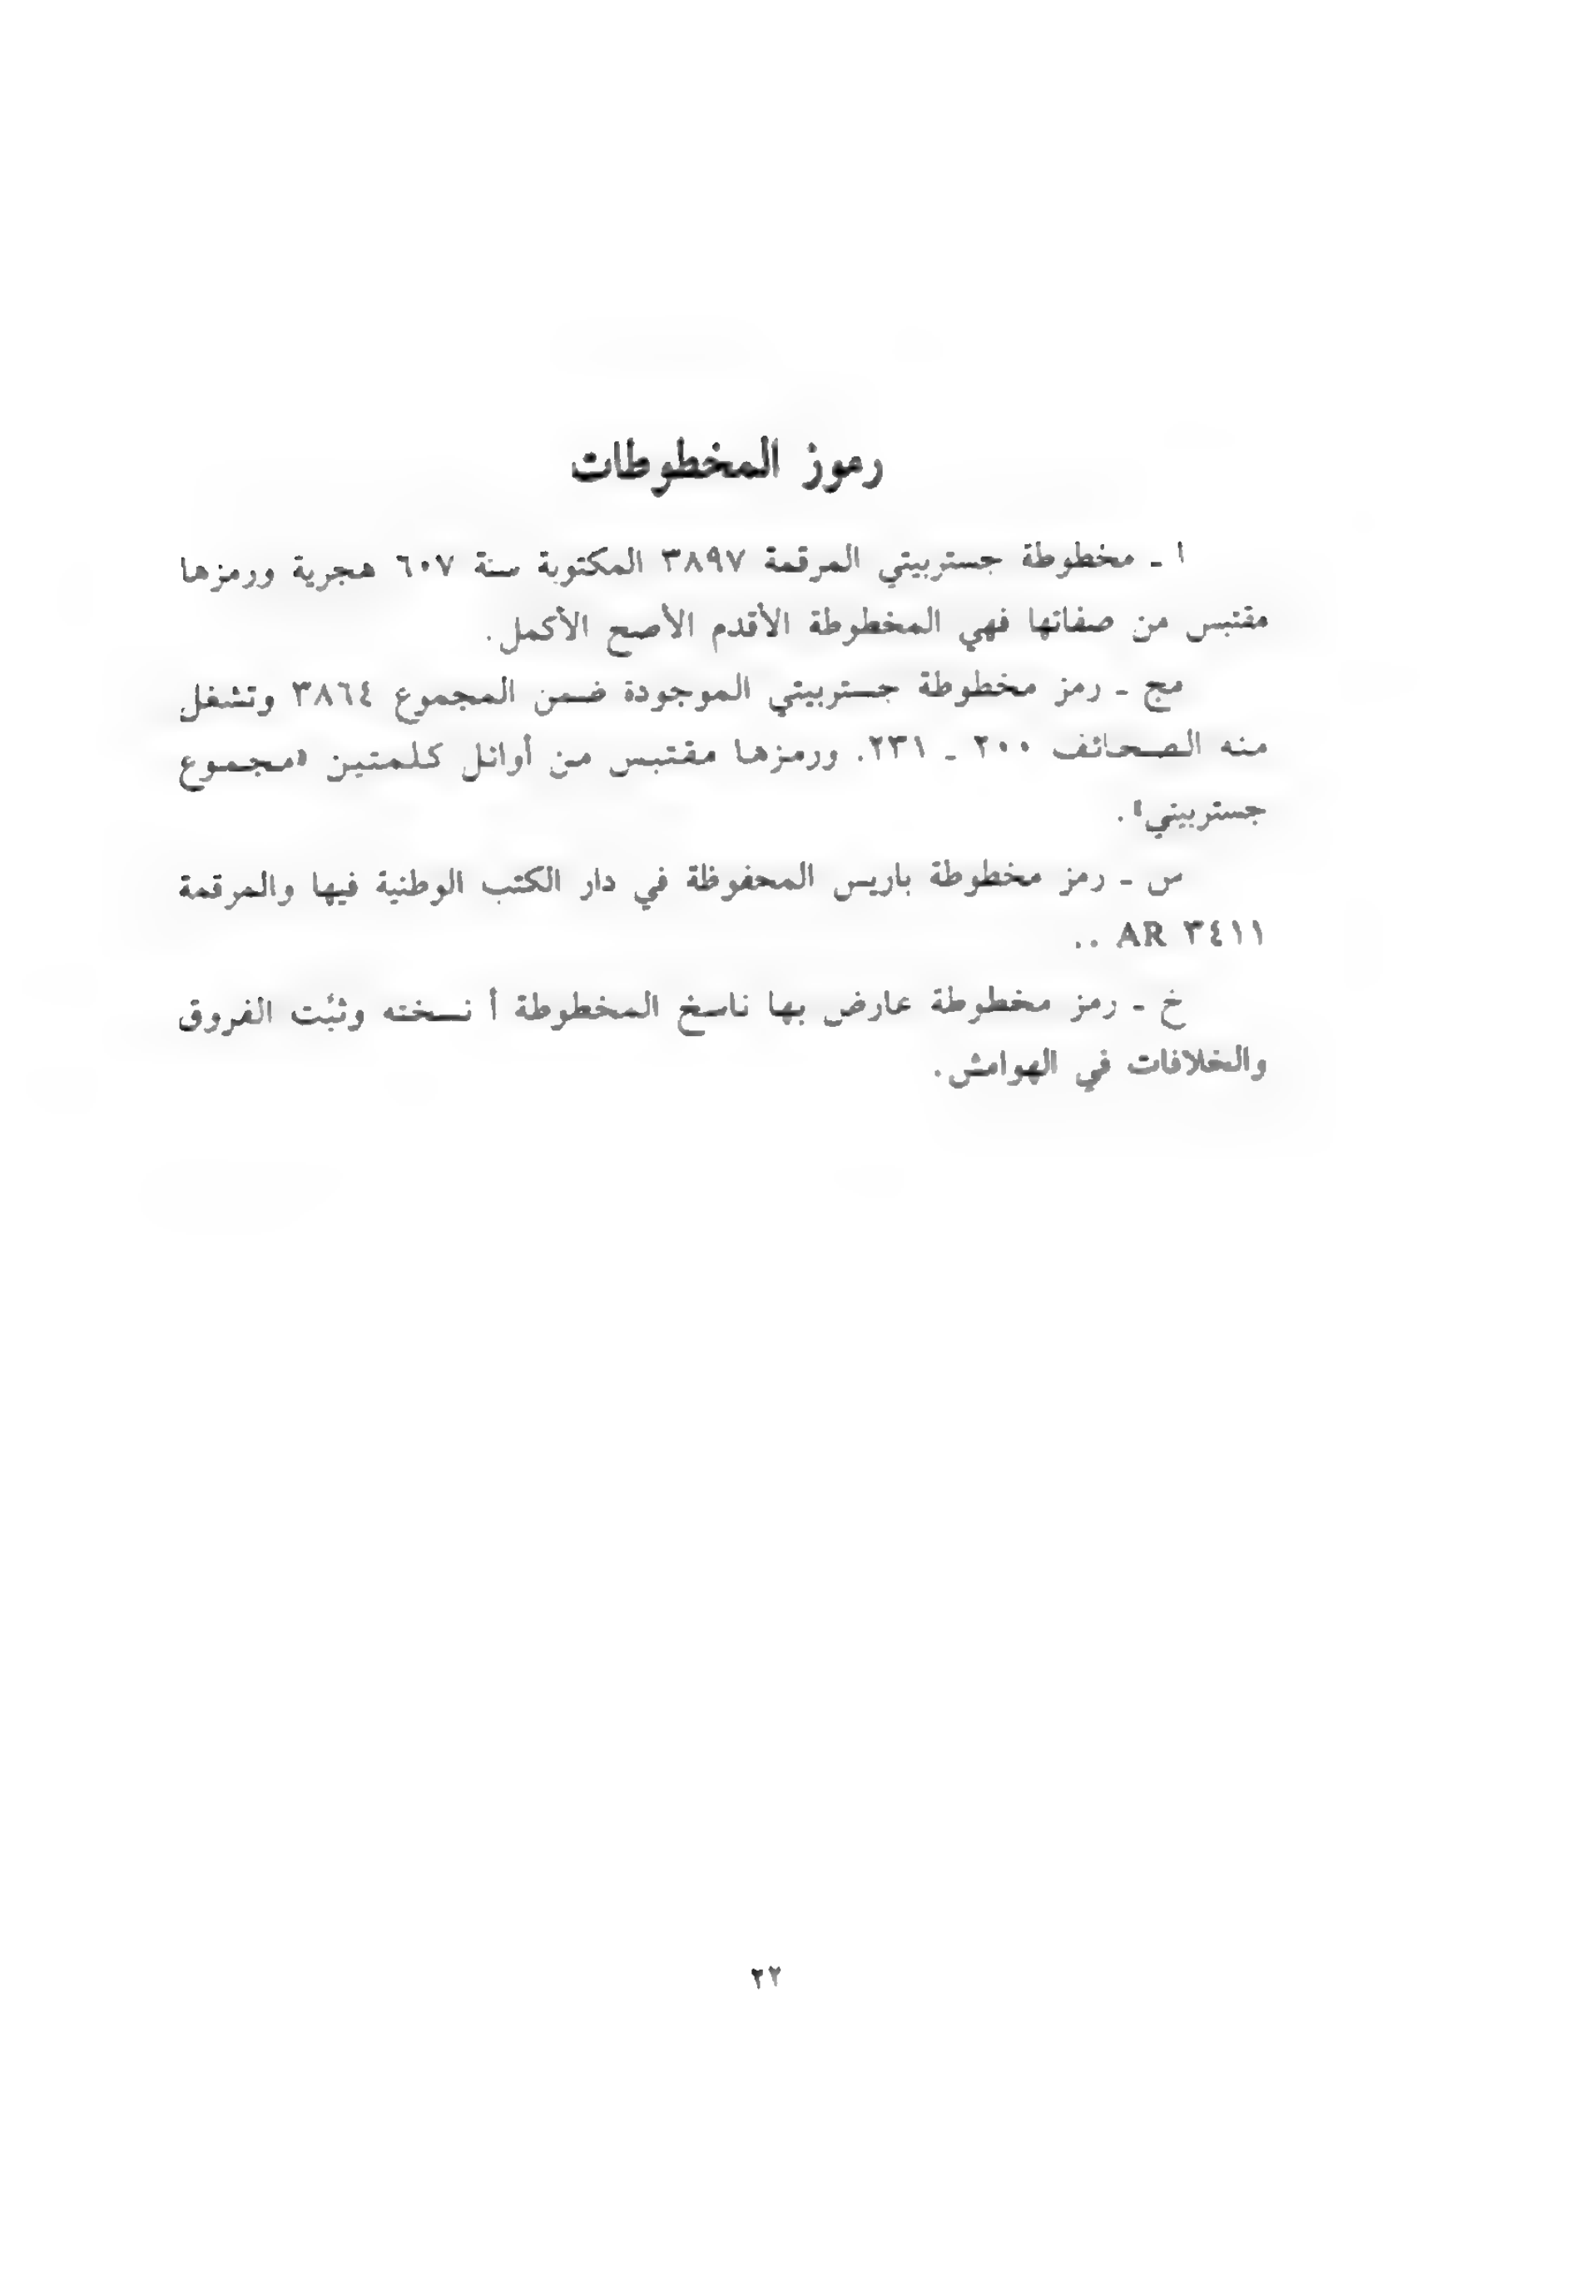 رموز المخطوطات
ا ـ مخطوطة جستربيتي المرقمة ٣٨٩٧ المكتوبة سنة ٦٠٧ هجرية ورمزها
مقتبس من صفاتها فهي المخطوطة الأقدم الأصح الأكمل.
مج ـ رمز مخطوطة جستربيتي الموجودة ضمن المجموع ٣٨٦٤ وتشغل
منه الصحائف ٢٠٠ ـ ٢٣١. ورمزها مقتبس من أوائل كلمتين «مجموع
جستربيتي».
س ـ رمز مخطوطة باريس المحفوظة في دار الكتب الوطنية فيها والمرقمة
٣٤١١ AR ..
خ ـ رمز مخطوطة عارض بها ناسخ المخطوطة أ نسخته وثبّت الفروق
والخلافات في الهوامش.
٢٢